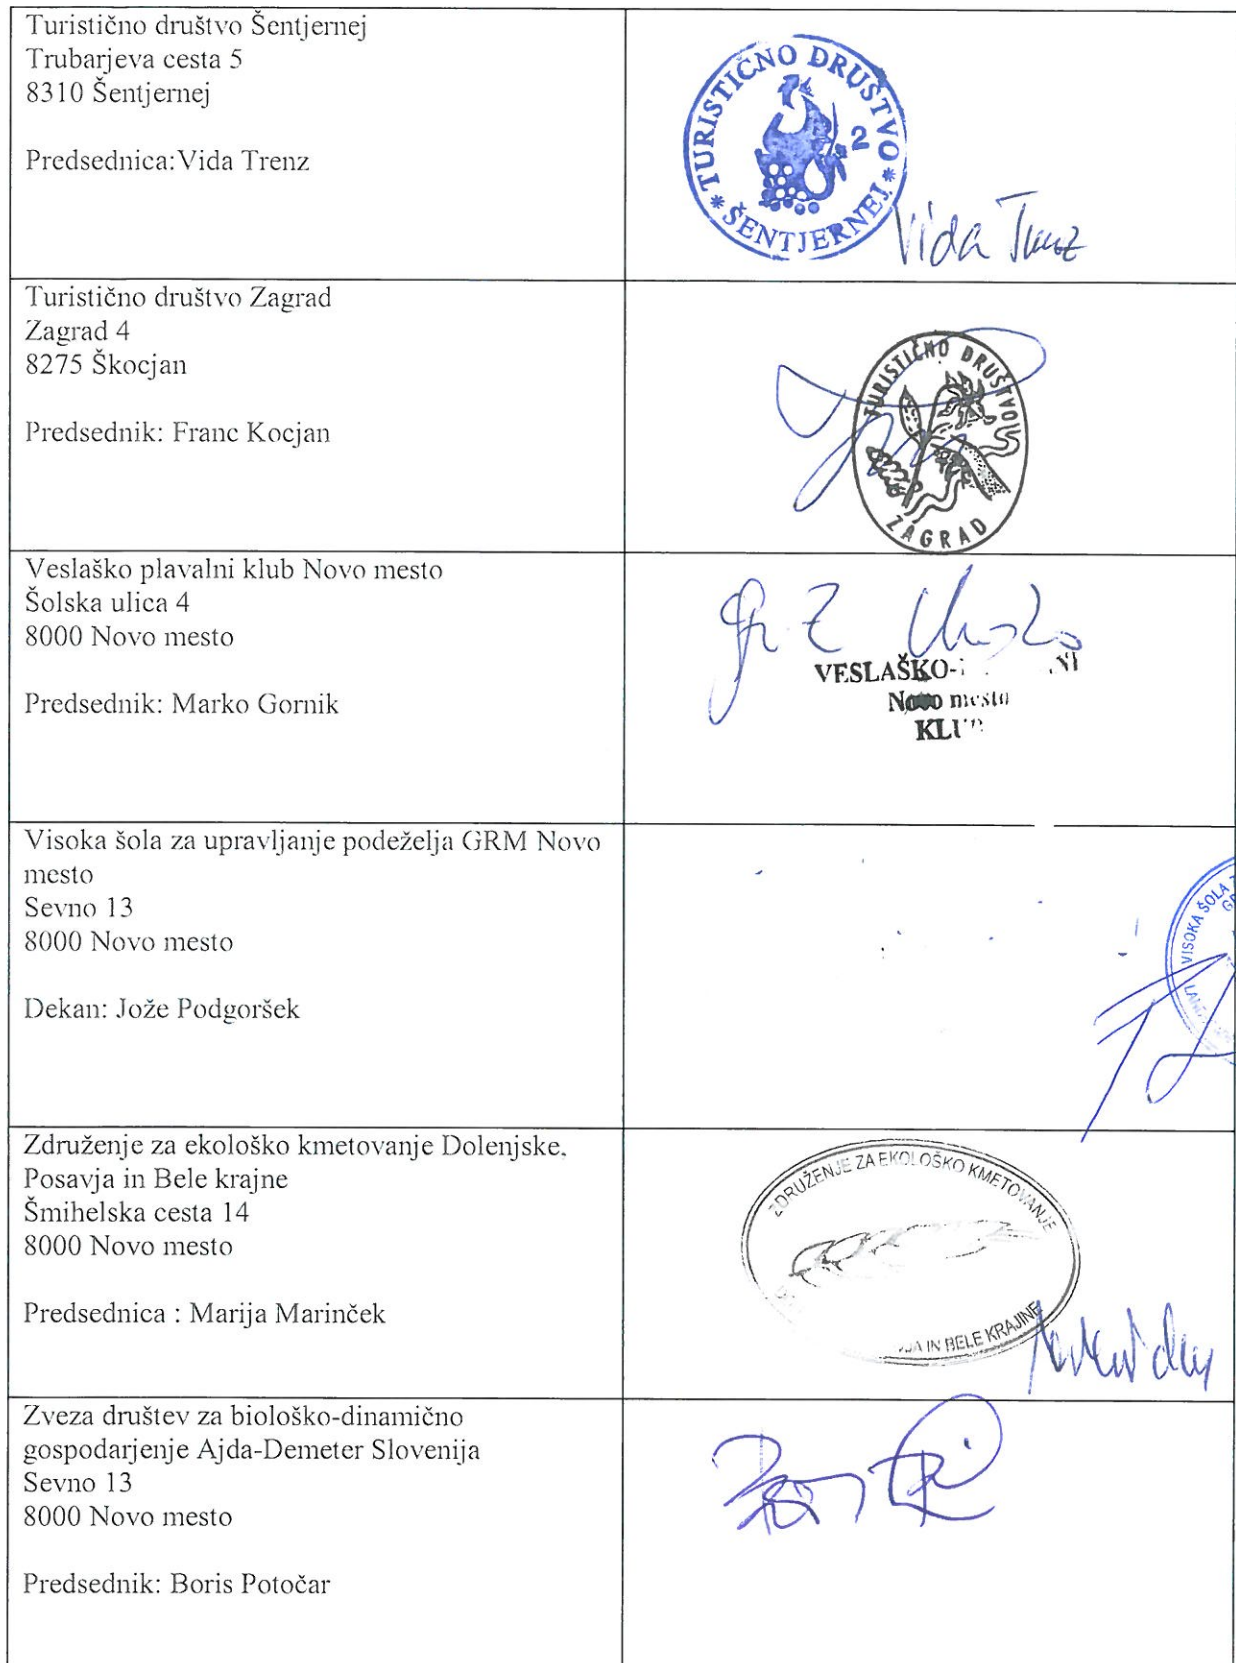 Turistično društvo Šentjernej
Trubarjeva cesta 5
8310 Šentjernej
Predsednica: Vida Trenz
TURISTIČNO DRUŠTVO
2
* ŠENTJERNEJ *
Vida Trenz
Turistično društvo Zagrad
Zagrad 4
8275 Škocjan
Predsednik: Franc Kocjan
TURISTIČNO DRUŠTVO
ZAGRAD
Veslaško plavalni klub Novo mesto
Šolska ulica 4
8000 Novo mesto
Predsednik: Marko Gornik
VESLAŠKO-
Novo mesto
Visoka šola za upravljanje podeželja GRM Novo
mesto
Sevno 13
8000 Novo mesto
Dekan: Jože Podgoršek
VISOKA ŠOLA
Združenje za ekološko kmetovanje Dolenjske,
Posavja in Bele krajne
Šmihelska cesta 14
8000 Novo mesto
Predsednica : Marija Marinček
ZDRUŽENJE ZA EKOLOŠKO KMETOVANJE
IN BELE KRAJINE
Zveza društev za biološko-dinamično
gospodarjenje Ajda-Demeter Slovenija
Sevno 13
8000 Novo mesto
Predsednik: Boris Potočar